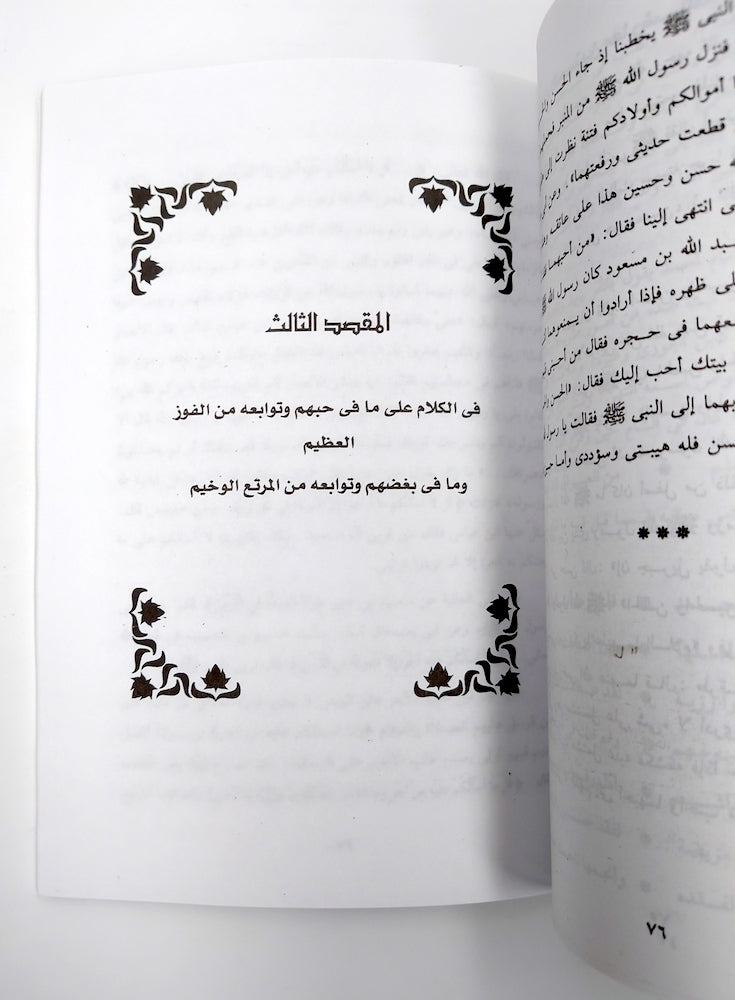 النبى ﷺ يخطبنا إذ جاء الحسن
فنزل رسول الله ﷺ من المنبر
أموالكم وأولادكم فتنة نظرت إلى
قطعت حديثى ورفعتهما».
حسن وحسين هذا على عاتقه
انتهى إلينا فقال: «من أحبهما
الله بن مسعود كان رسول الله ﷺ
ظهره فإذا أرادوا أن يمنعوهما
فى حجره فقال من أحبنى
بيتك أحب إليك فقال: «الحسن
بهما إلى النبى ﷺ فقالت يا رسول
فله هيبتى وسؤددى وأما
***
٧٦
المقصد الثالث
فى الكلام على ما فى حبهم وتوابعه من الفوز
العظيم
وما فى بغضهم وتوابعه من المرتع الوخيم